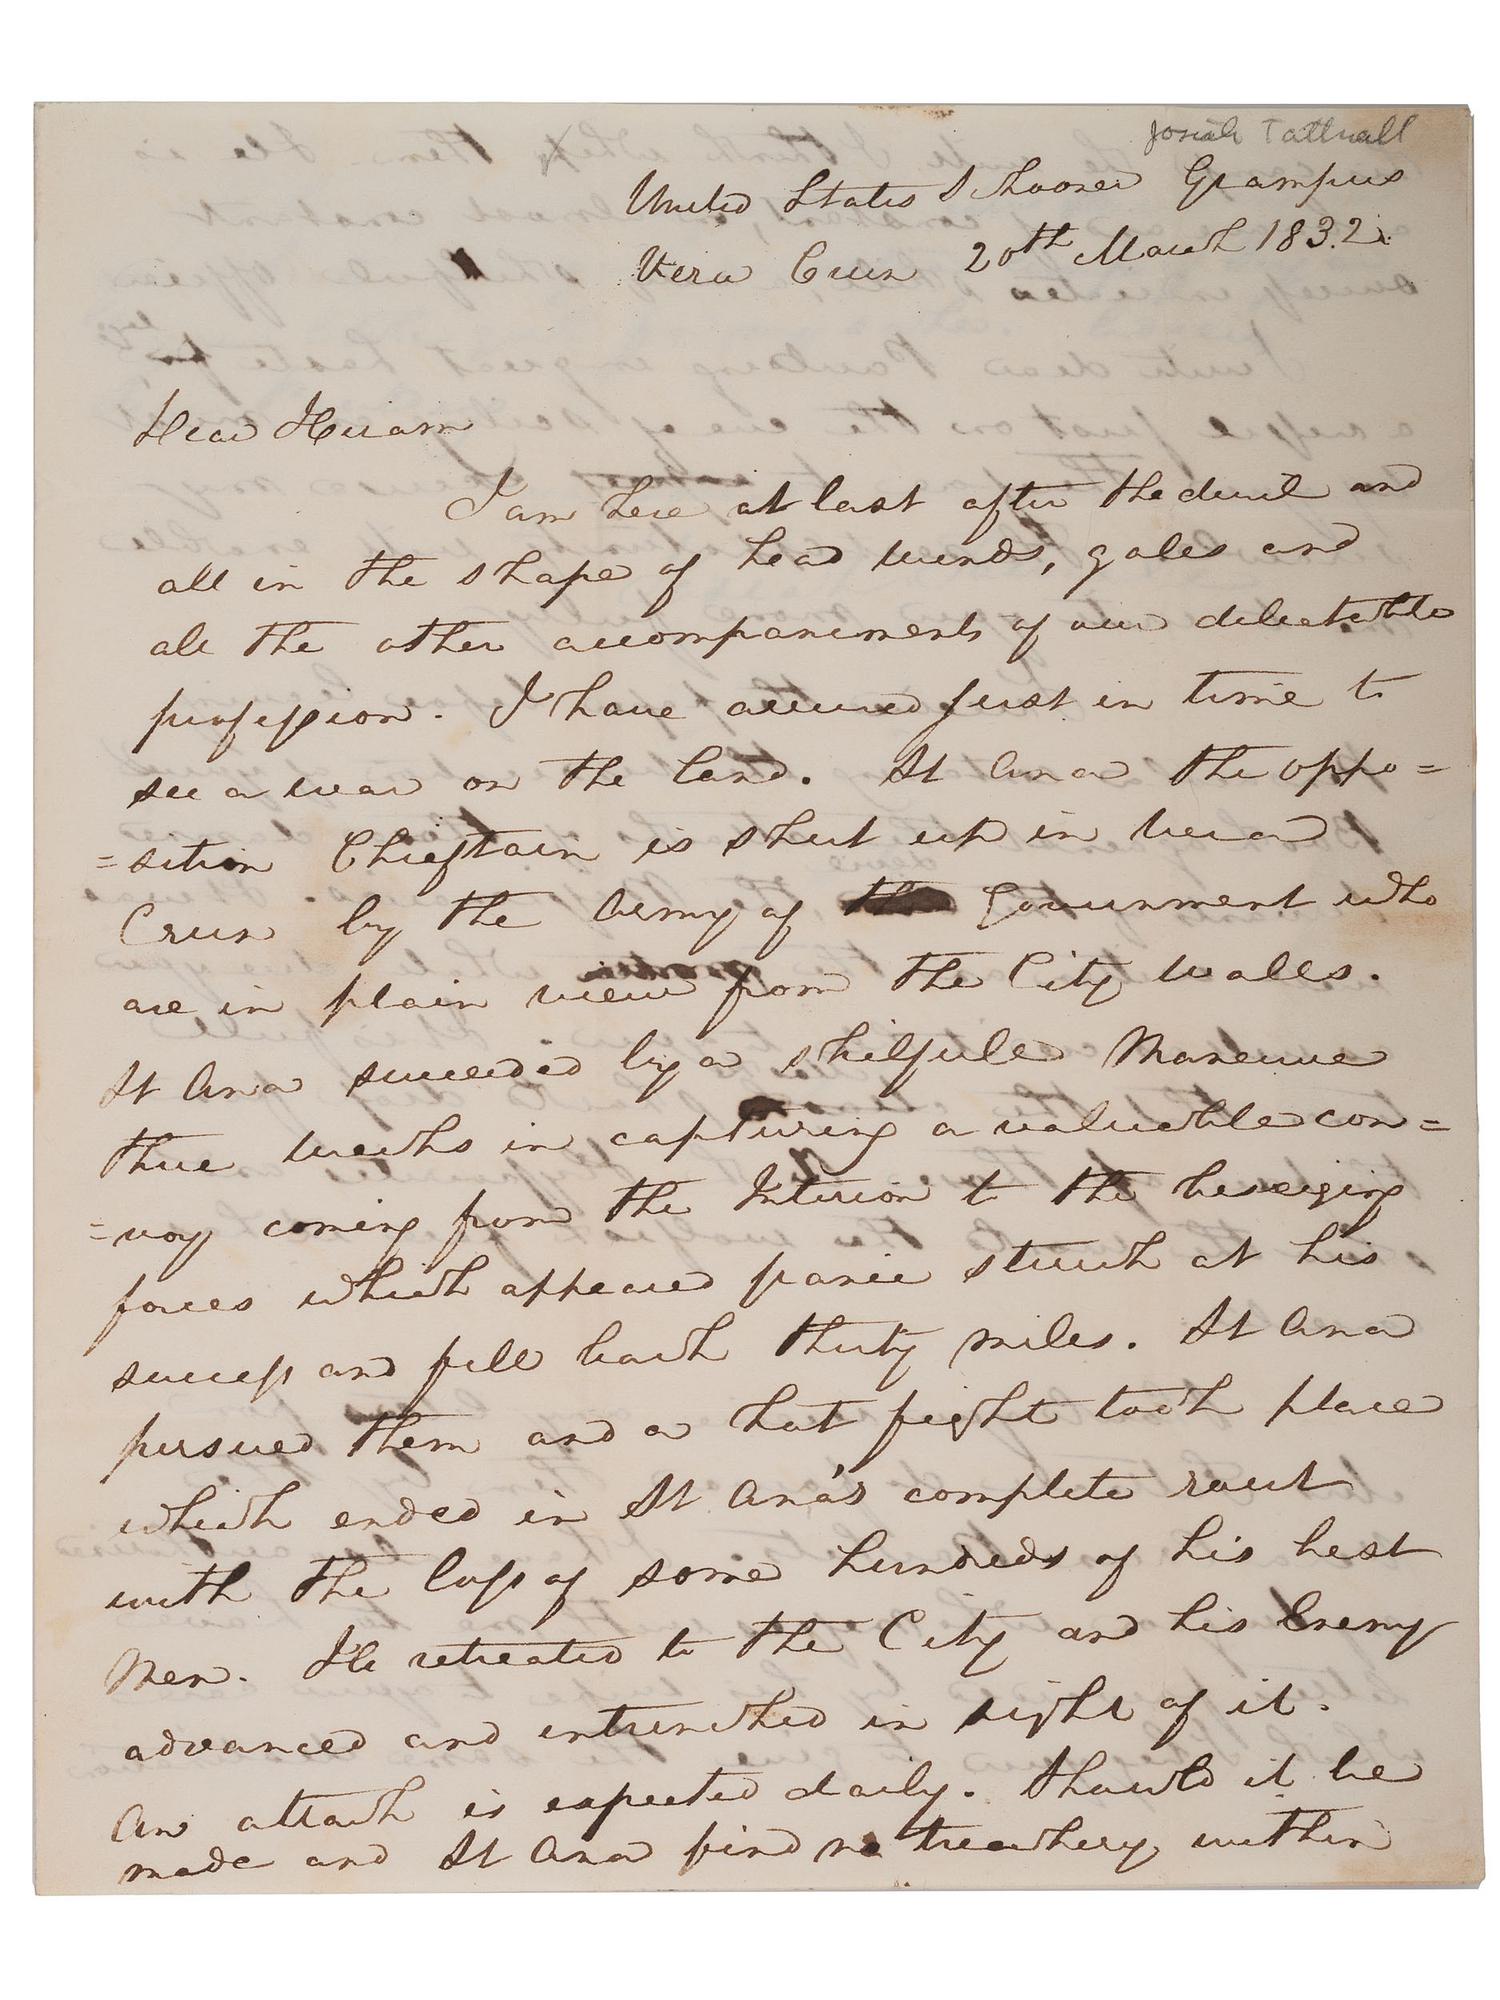 Josiah Tattnall
United States Schooner Grampus
Vera Cruz 20th March 1832.
Dear Hiram
I am here at last after the devil and
all in the shape of head winds, gales and
all the other accompaniments of our delectable
profession. I have arrived just in time to
see a war on the land. St Ana the oppo=
=sition Chieftain is shut up in Vera
Cruz by the Army of the Government who
are in plain view from the City walls.
St Ana succeeded by a skilfull Maneuve
three weeks in capturing a valuable con=
=voy coming from the Interior to the beseiging
forces which appeared panic struck at his
success and fell back thirty miles. St Ana
pursued them and a hot fight took place
which ended in St Ana's complete rout
with the loss of some hundreds of his best
Men. He retreated to the City and his Enemy
advanced and entrenched in sight of it.
An attack is expected daily. Should it be
made and St Ana find no treachery within